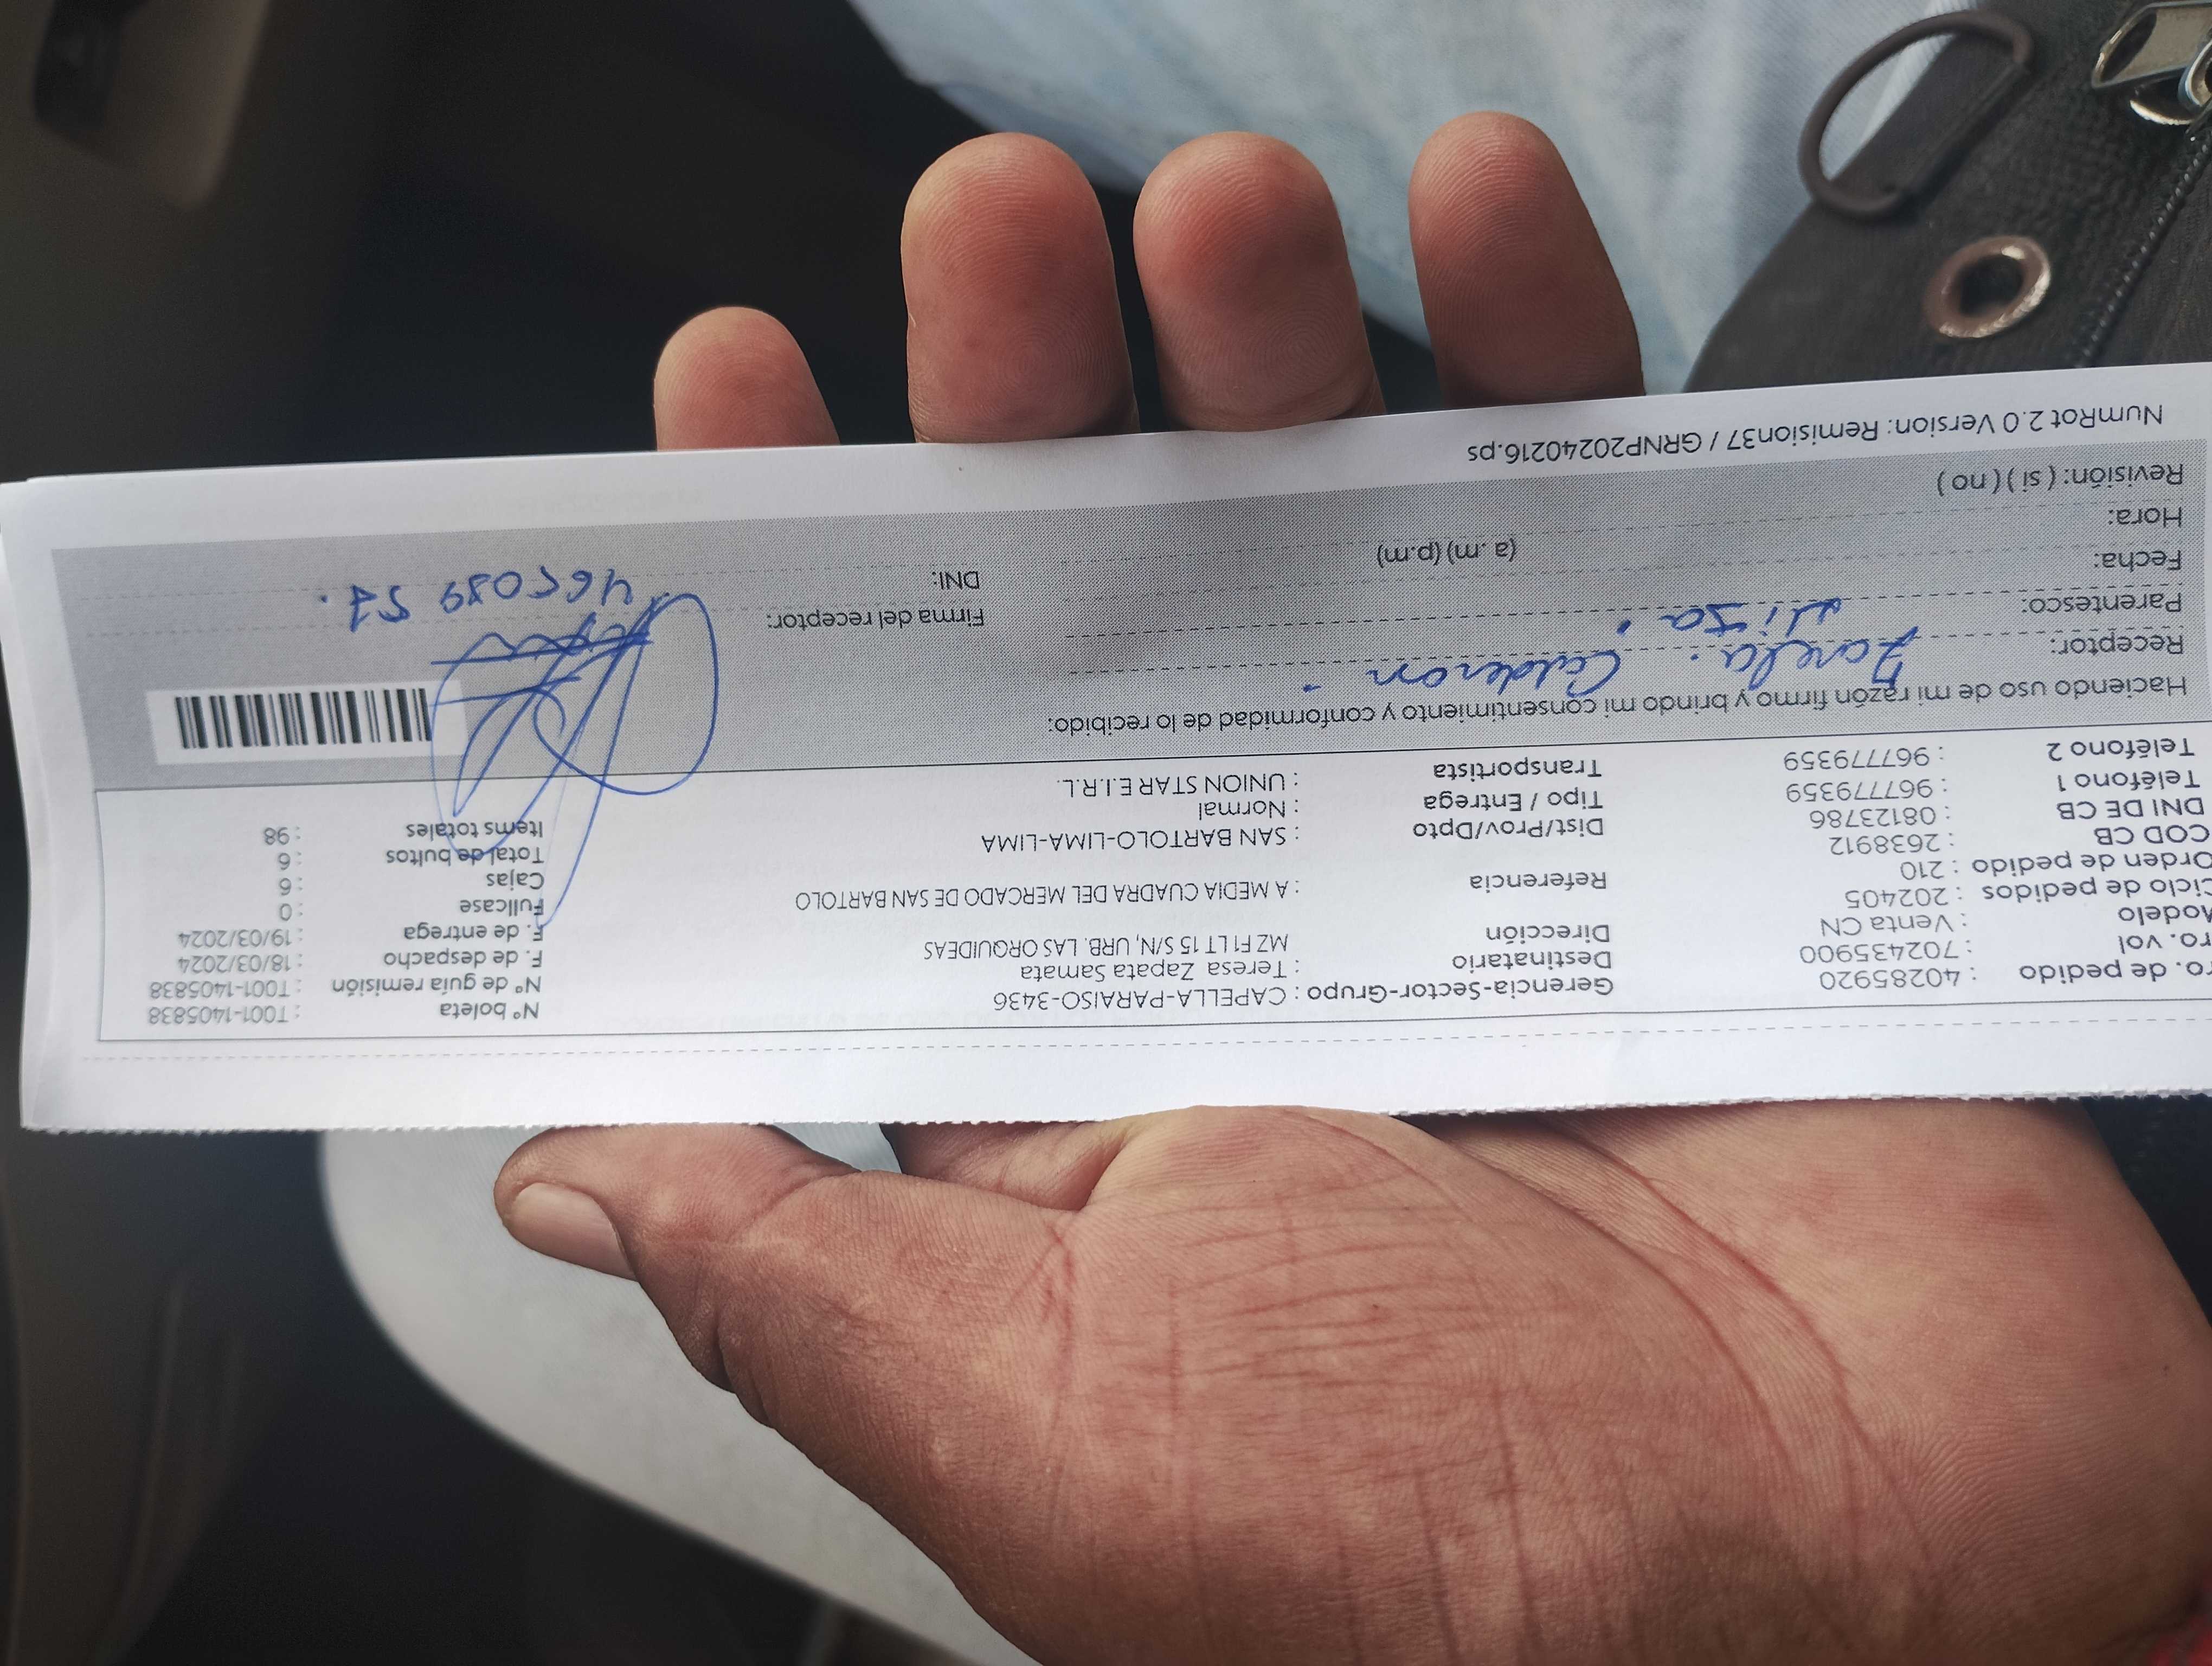 ro. de pedido : 40285920
ro. vol : 702435900
Modelo : Venta CN
Ciclo de pedidos : 202405
Orden de pedido : 210
COD CB : 2638912
DNI DE CB : 08123786
Teléfono 1 : 967779359
Teléfono 2 : 967779359
Gerencia-Sector-Grupo : CAPELLA-PARAISO-3436
Destinatario : Teresa Zapata Samata
Dirección MZ F1 LT 15 S/N, URB. LAS ORQUIDEAS
Referencia : A MEDIA CUADRA DEL MERCADO DE SAN BARTOLO
Dist/Prov/Dpto : SAN BARTOLO-LIMA-LIMA
Tipo / Entrega : Normal
Transportista : UNION STAR E.I.R.L.
N° boleta : T001-1405838
N° de guía remisión : T001-1405838
F. de despacho : 18/03/2024
F. de entrega : 19/03/2024
Fullcase : 0
Cajas : 6
Total de bultos : 6
Items totales : 98
Haciendo uso de mi razón firmo y brindo mi consentimiento y conformidad de lo recibido:
Receptor: Zarela. Calderon.
Parentesco: Hija.
Fecha:
Hora: (a .m) (p.m)
Revisión: ( si ) ( no )
Firma del receptor:
DNI:
NumRot 2.0 Version: Remision37 / GRNP20240216.ps